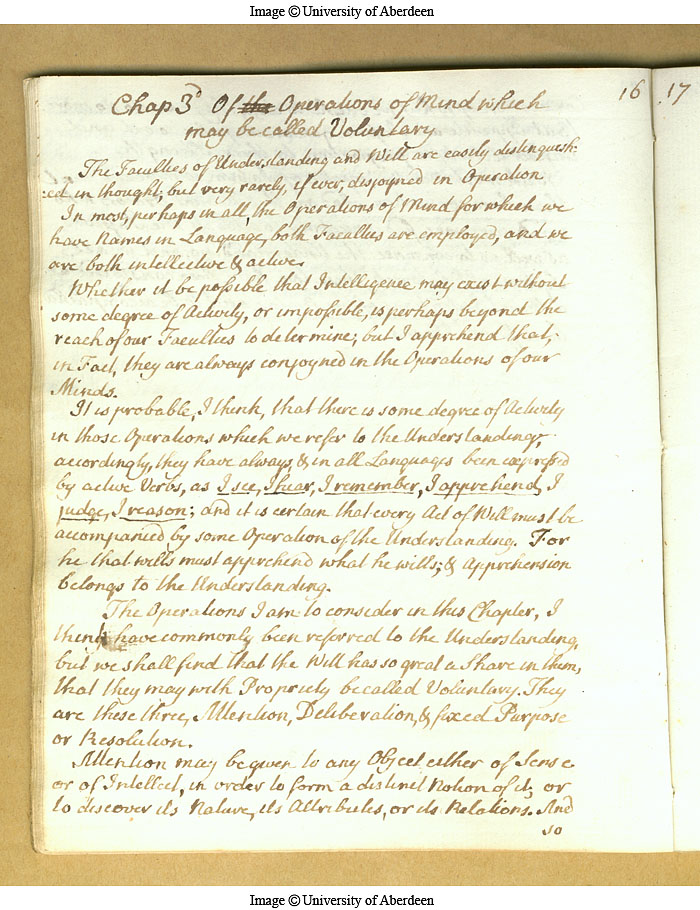 Image © University of Aberdeen
16
17
Chap 3d Of the Operations of Mind which
may be called Voluntary
The Faculties of Understanding and Will are easily distinguesh:
:ed in thought; but very rarely, if ever, disjoyned in Operation
In most, perhaps in all, the Operations of Mind for which we
have Names in Language, both Faculties are employed, and we
are both intellective & active.
Whether it be possible that Intelligence may exist without
some degree of Activity, or impossible, is perhaps beyond the
reach of our Faculties to determine; but I apprehend that,
in Fact, they are always conjoyned in the Operations of our
Minds.
It is probable, I think, that there is some degree of Activity
in those Operations which we refer to the Understanding;
accordingly, they have always, & in all Languages been expressed
by active Verbs, as I see, I hear, I remember, I apprehend, I
judge, I reason; and it is certain that every Act of Will must be
accompanied by some Operation of the Understanding. For
he that wills must apprehend what he wills; & Apprehension
belongs to the Understanding.
The Operations I am to consider in this Chapter, I
think have commonly been referred to the Understanding,
but we shall find that the Will has so great a Share in them,
that they may with Propriety be called Voluntary. They
are these three, Attention, Deliberation, & fixed Purpose
or Resolution.
Attention may be given to any Object either of Sense
or of Intellect, in order to form a distinct Notion of it, or
to discover its Nature, its Attributes, or its Relations. And
so
Image © University of Aberdeen